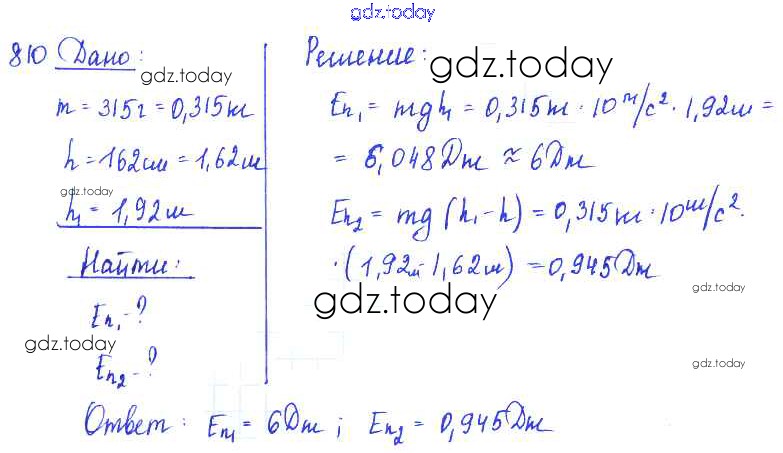 gdz.today
810 Дано:
gdz.today
m = 315г = 0,315кг
h = 162см = 1,62м
gdz.today
h₁ = 1,92м
Найти:
Eп₁ - ?
gdz.today
Eп₂ - ?
Решение:
gdz.today
Eп₁ = mgh₁ = 0,315кг · 10 м/с² · 1,92м =
= 6,048Дж ≈ 6Дж
Eп₂ = mg (h₁ - h) = 0,315кг · 10м/с² ·
· (1,92м - 1,62м) = 0,945Дж
gdz.today
gdz.today
gdz.today
Ответ: Eп₁ = 6Дж; Eп₂ = 0,945Дж